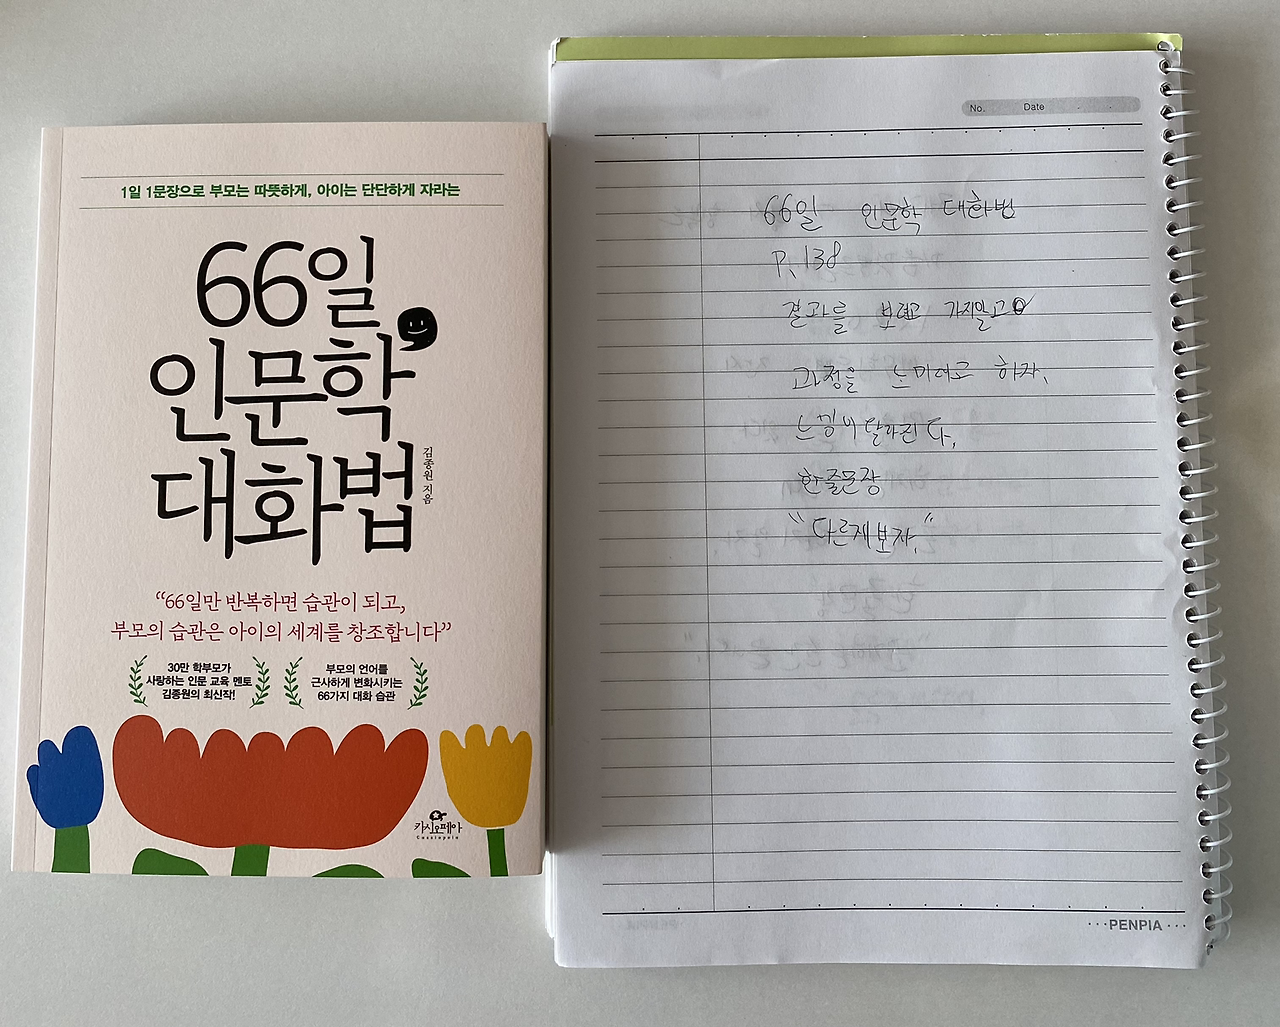 1일 1문장으로 부모는 따뜻하게, 아이는 단단하게 자라는
66일
인문학
대화법
김종원 지음
“66일만 반복하면 습관이 되고,
부모의 습관은 아이의 세계를 창조합니다”
30만 학부모가
사랑하는 인문 교육 멘토
김종원의 최신작!
부모의 언어를
근사하게 변화시키는
66가지 대화 습관
카시오페아
Cassiopeia
No. Date
66일 인문학 대화법
P. 138
결과를 보려고 가지말고
과정을 느끼려고 하자.
느낌이 달라진다.
한줄문장
“다르게보자.”
PENPIA